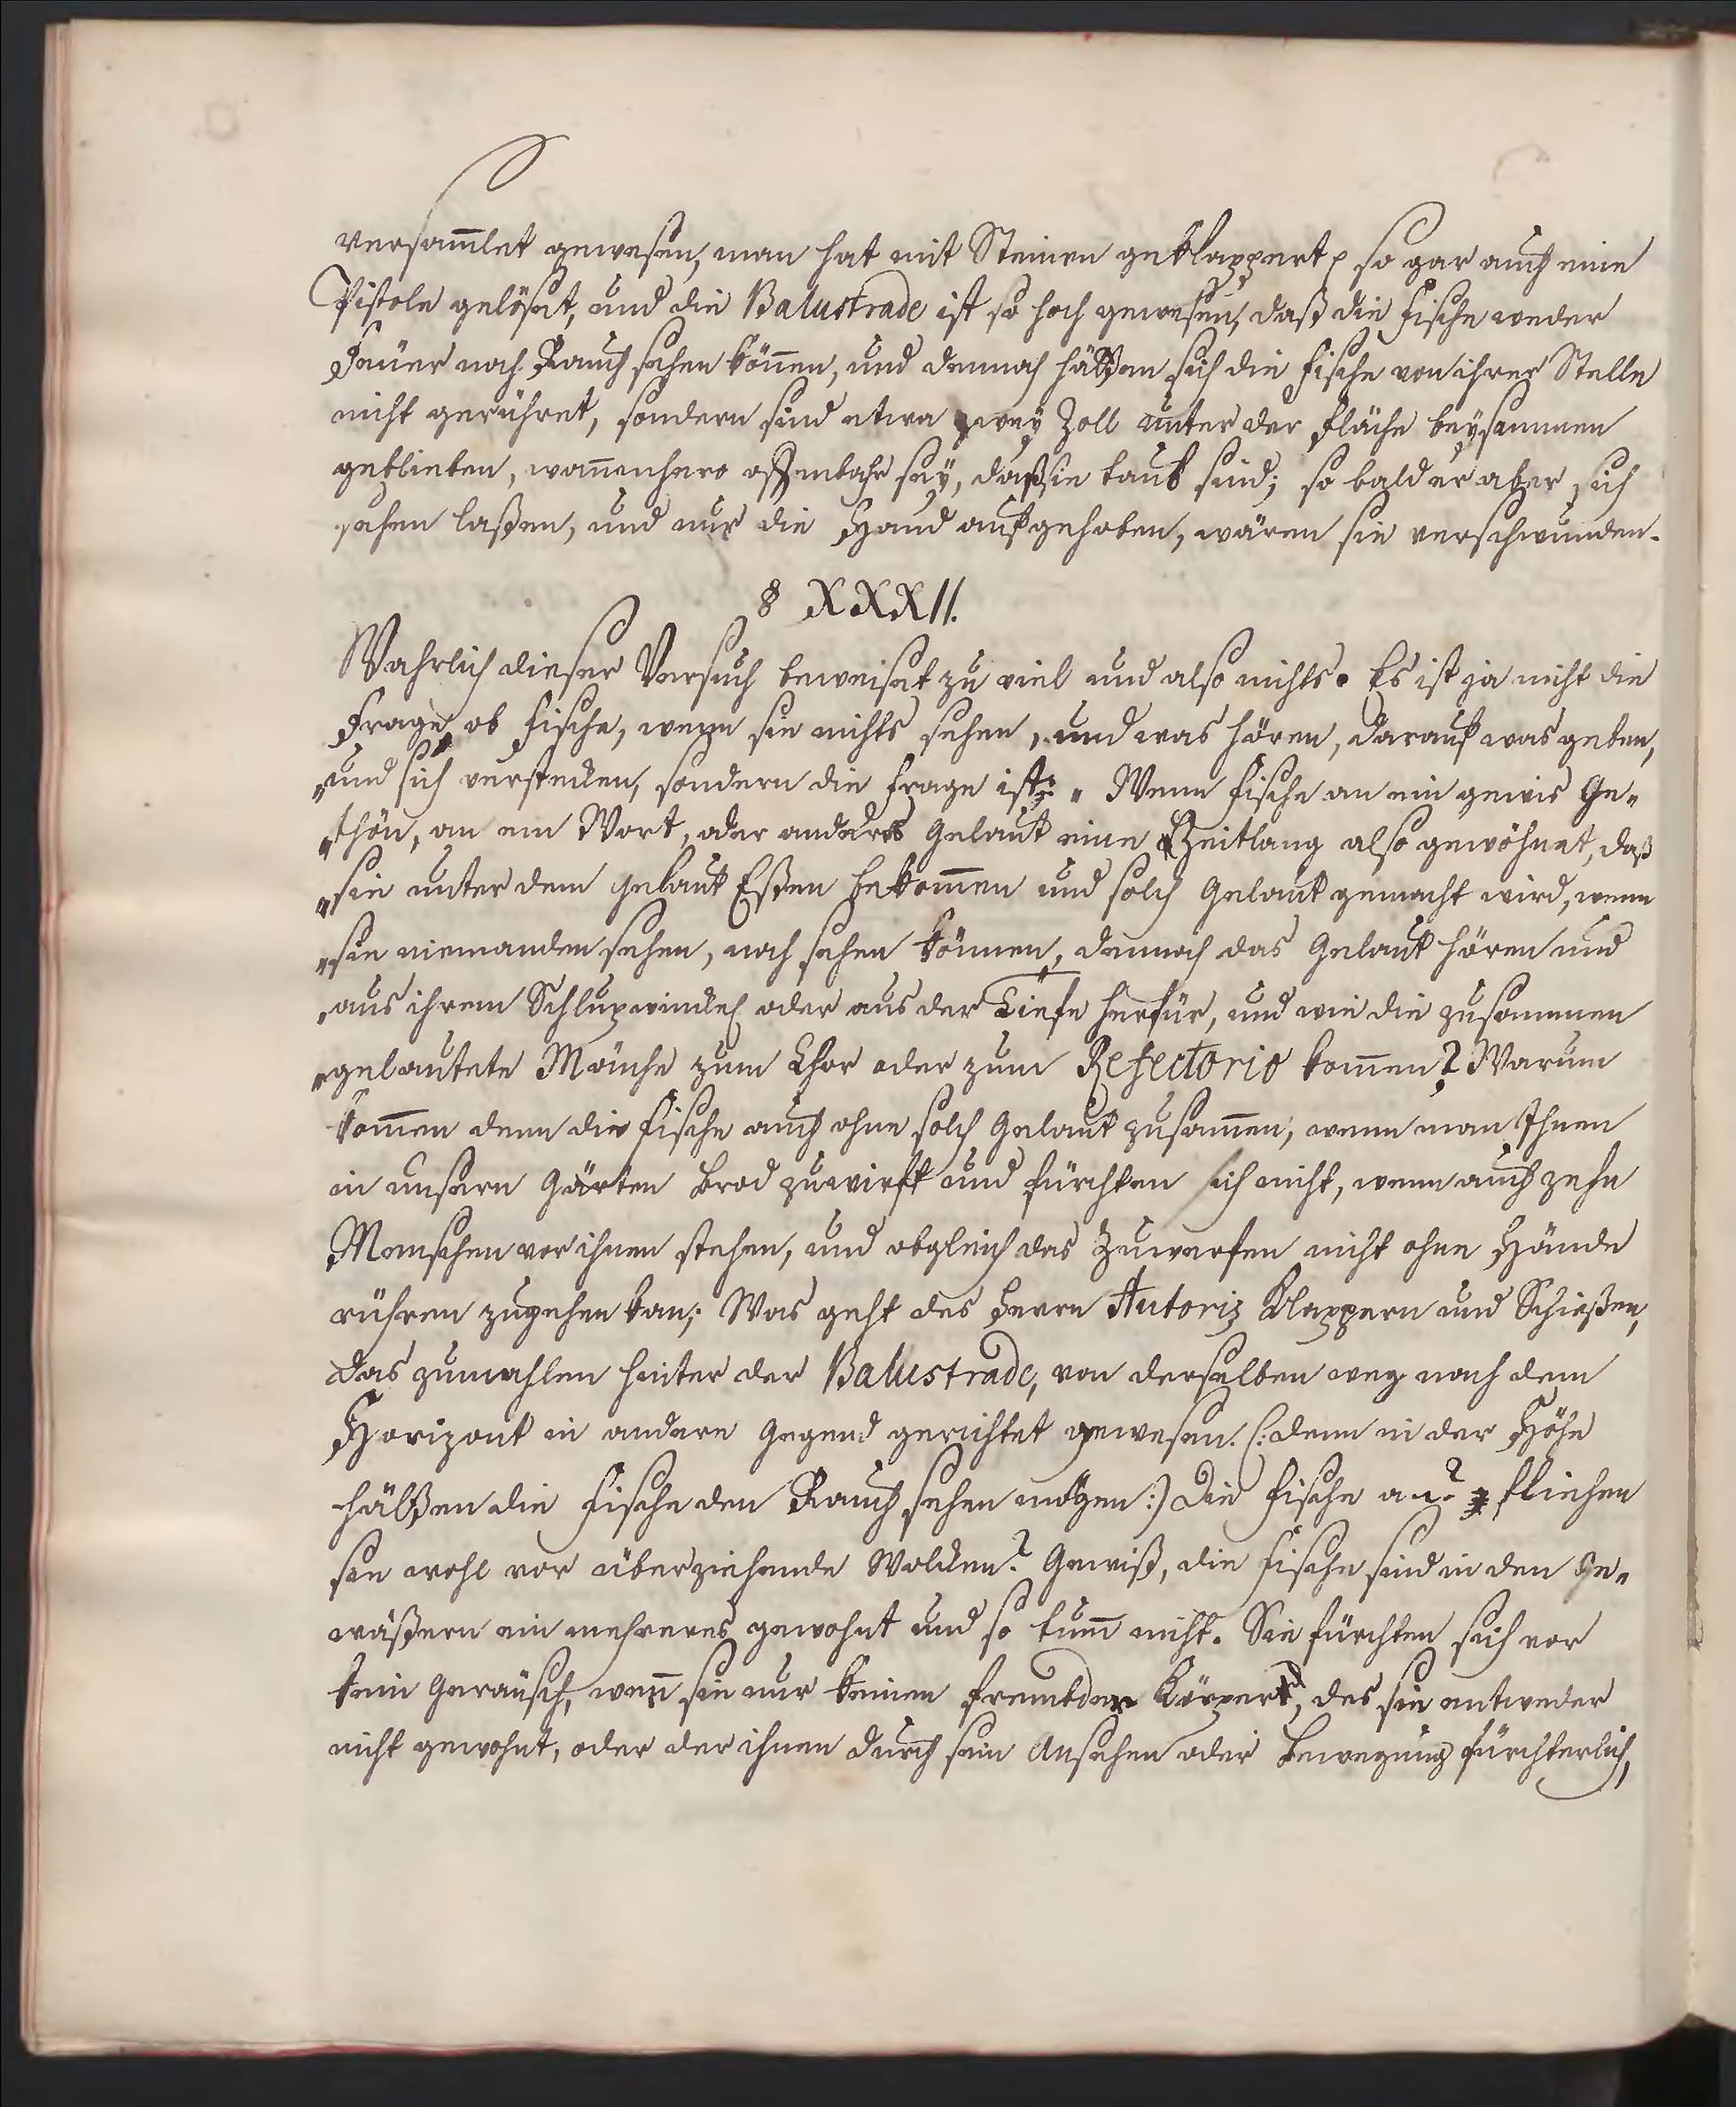 versam̅let gewesen, man hat mit Steinen geklappert, so gar auch eine
Pistole gelöset, und die Balustrade ist so hoch gewesen, daß die Fische weder
Feuer noch Rauch sehen kön̅en, und dennoch hätten sich die Fische von ihrer Stelle
nicht gerühret, sondern sind etwa zwey Zoll unter der Fläche beysammen
geblieben, wan̅enhero offenbahr sey, daß sie taub sind; so bald er aber sich
sehen laßen, und nur die Hand aufgehoben, wären sie verschwunden.
§ XXXII.
Wahrlich dieser Versuch beweiset zu viel und also nichts. Es ist ja nicht die
Frage, ob Fische, wenn sie nichts sehen, und was hören, darauf was geben,
„und sich verstecken, sondern die Frage ist: „ Wenn Fische an ein gewis Ge„
„thön, an ein Wort, oder anders Gelaut eine Zeitlang also gewöhnet, daß
„sie unter dem Gelaut Eßen bekom̅en und solch Gelaut gemacht wird, wenn
„sie niemanden sehen, noch sehen können, dennoch das Gelaut hören und
„aus ihrem Schlupwinckel oder aus der Tiefe herfür, und wie die zusammen
„gelautete Mönche zum Chor oder zum Refectorio kom̅en? Warum
kom̅en denn die Fische auch ohne solch Gelaut zusam̅en, wenn man Ihnen
in unsern Gärten Brod zuwirft und fürchten sich nicht, wenn auch zehn
Menschen vor ihnen stehen, und obgleich das Zuwerfen nicht ohne Hände
rühren zugehen kan; Was geht des Herrn Autoris Klappern und Schießen,
das zumahlen hinter der Balustrade, von derselben weg nach dem
Horizont in andere Gegend gerichtet gewesen. (: denn in der Höhe
hätten die Fische den Rauch sehen mögen :) die Fische an? fliehen
sie wohl vor überziehende Wolcken? Gewiß, die Fische sind in den Ge„
wäßern ein mehreres gewohnt und so tum̅ nicht. Sie fürchten sich vor
kein Geräusch, wen̅ sie nur keinen frembden Körper, des sie entweder
nicht gewohnt, oder der ihnen durch sein Ansehen oder Bewegung fürchterlich,